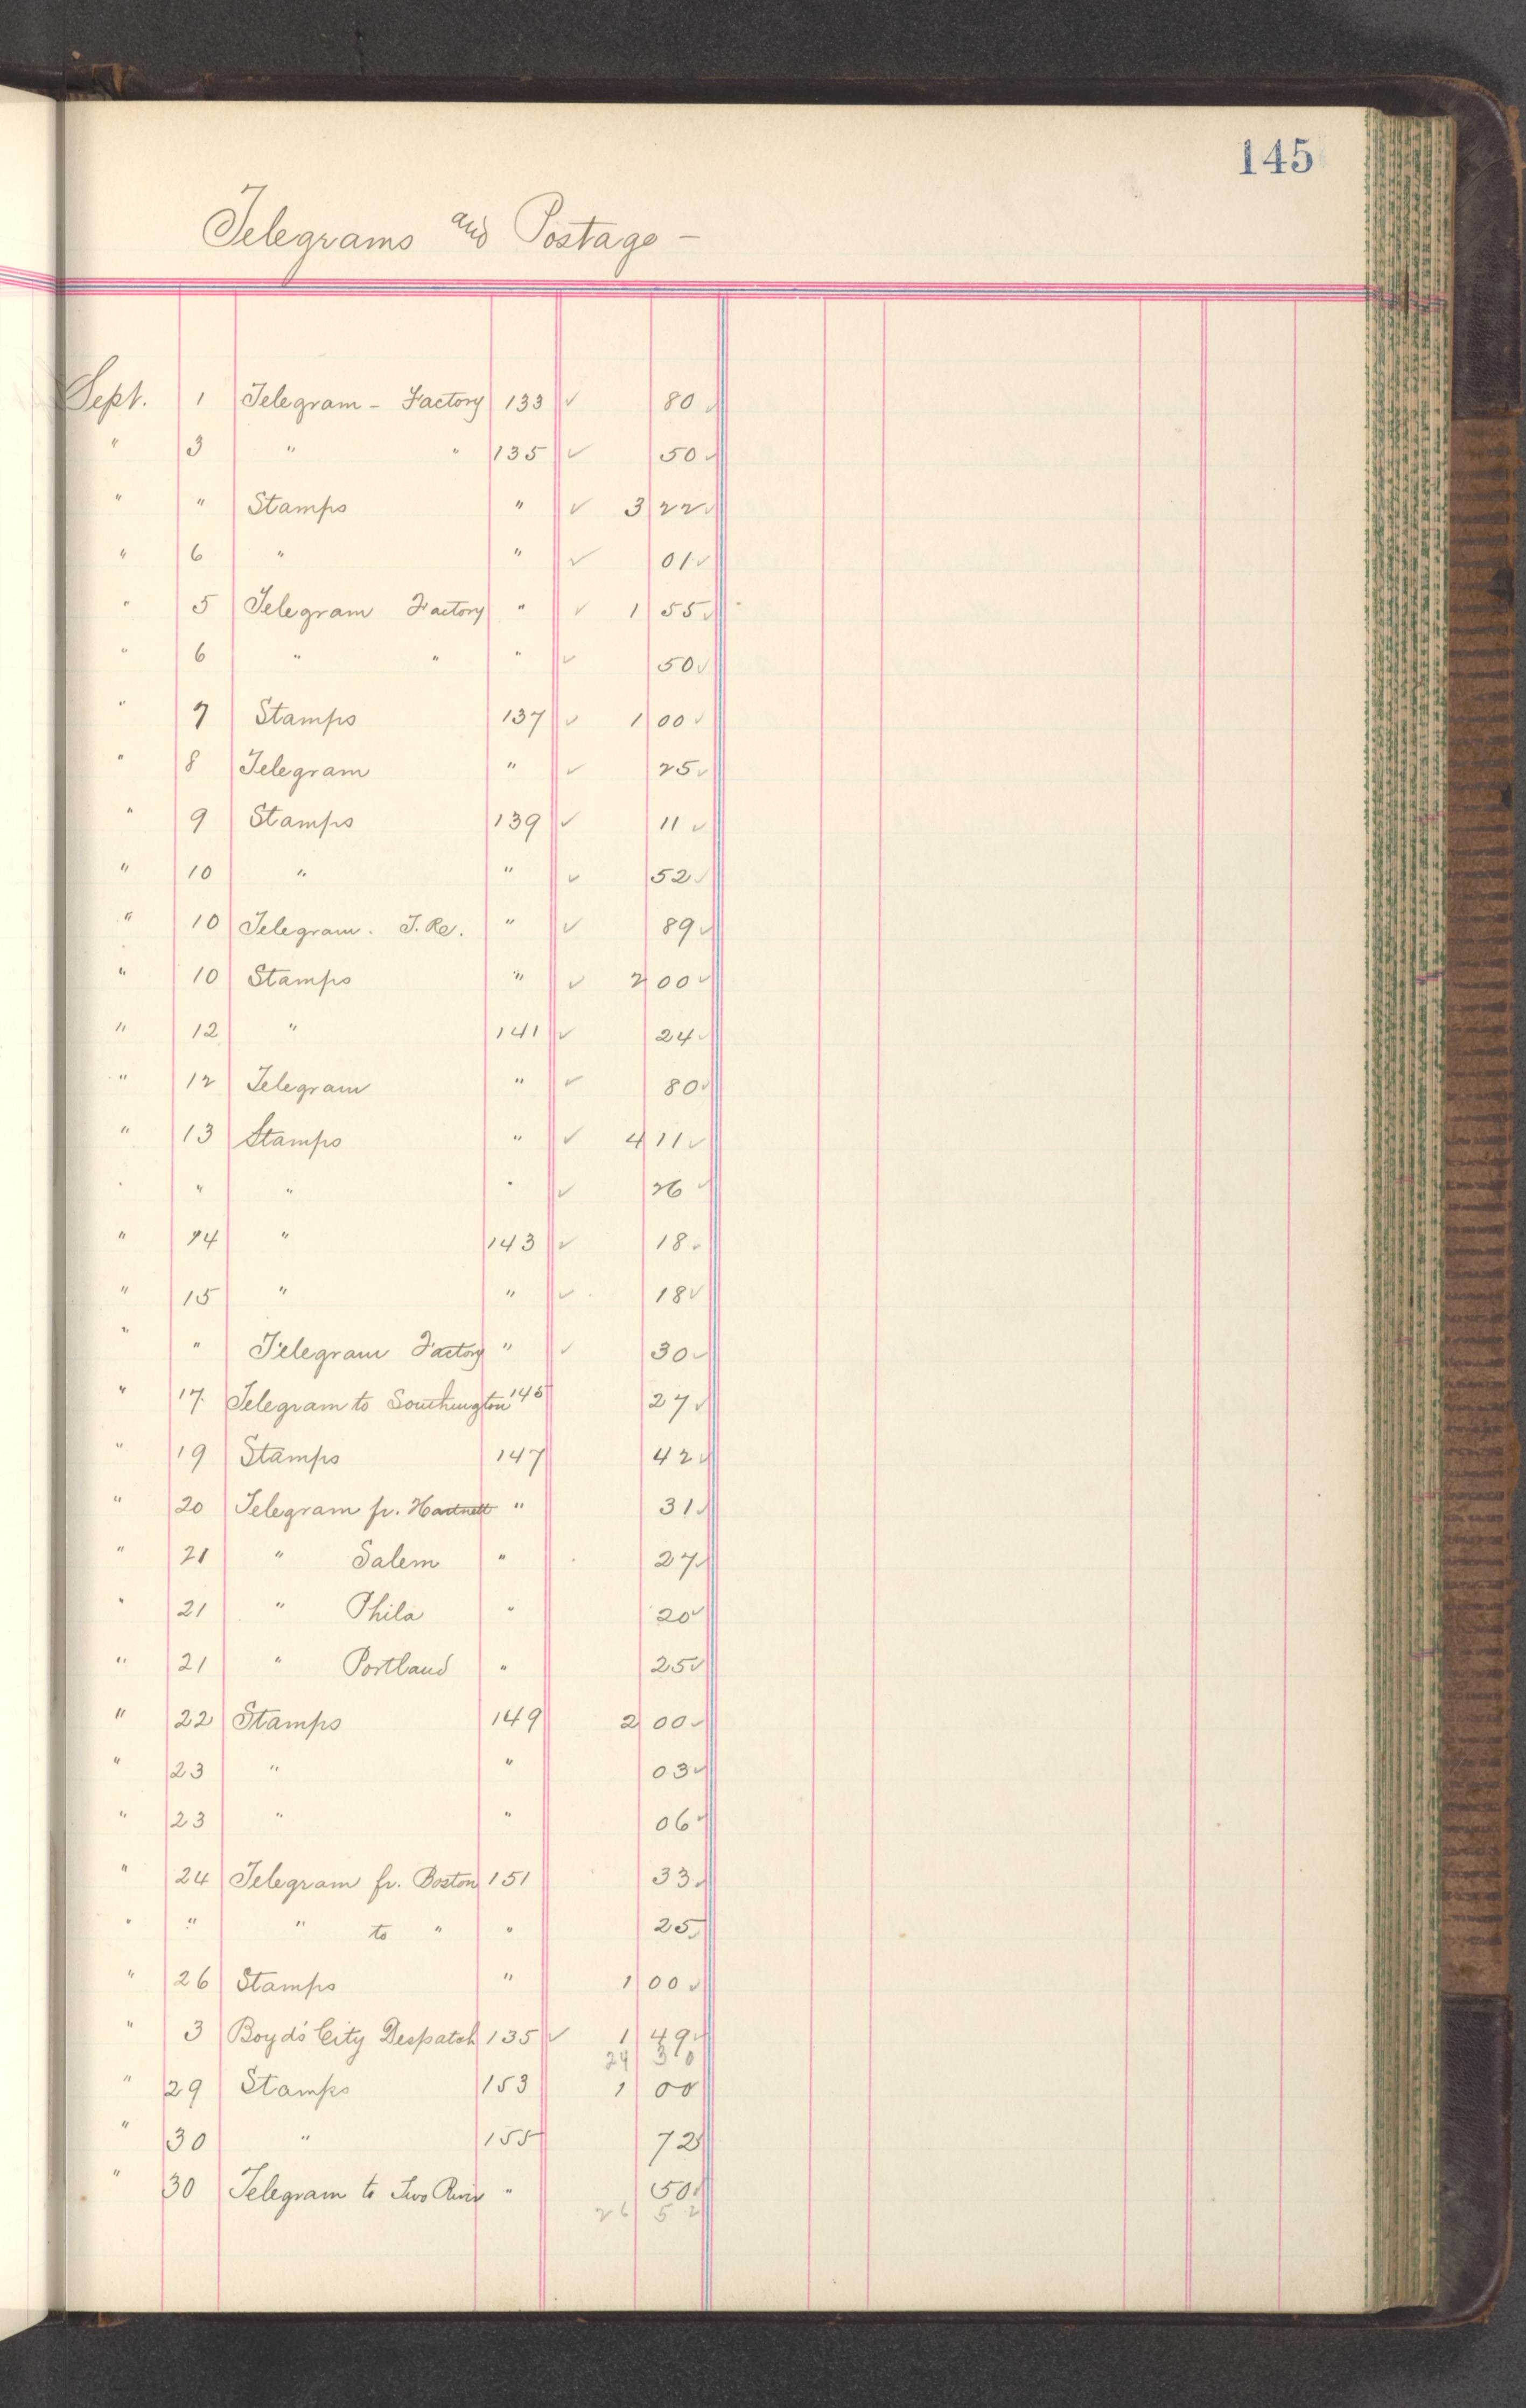 145
Telegrams and Postage -
Sept. 1 Telegram - Factory 133 ✓ 80 ✓
" 3 " " 135 ✓ 50 ✓
" " Stamps " ✓ 3 22 ✓
" 6 " " ✓ 01 ✓
" 5 Telegram Factory " ✓ 1 55 ✓
" 6 " " " ✓ 50 ✓
" 7 Stamps 137 ✓ 1 00 ✓
" 8 Telegram " ✓ 25 ✓
" 9 Stamps 139 ✓ 11 ✓
" 10 " " ✓ 52 ✓
" 10 Telegram. T. Rs. " ✓ 89 ✓
" 10 Stamps " ✓ 2 00 ✓
" 12 " 141 ✓ 24 ✓
" 12 Telegram " ✓ 80 ✓
" 13 Stamps " ✓ 4 11 ✓
" " " " ✓ 26 ✓
" 14 " 143 ✓ 18 ✓
" 15 " " ✓ 18 ✓
" " Telegram Factory " ✓ 30 ✓
" 17. Telegram to Southington 145 27 ✓
" 19 Stamps 147 42 ✓
" 20 Telegram fr. Hartnett " 31 ✓
" 21 " Salem " 27 ✓
" 21 " Phila " 20 ✓
" 21 " Portland " 25 ✓
" 22 Stamps 149 2 00 ✓
" 23 " " 03 ✓
" 23 " " 06 ✓
" 24 Telegram fr. Boston 151 33 ✓
" " " to " " 25 ✓
" 26 Stamps " 1 00 ✓
" 3 Boyd's City Despatch 135 ✓ 1 49 ✓
24 30
" 29 Stamps 153 1 00
" 30 " 155 72
" 30 Telegram to Two River " 50 ✓
26 52